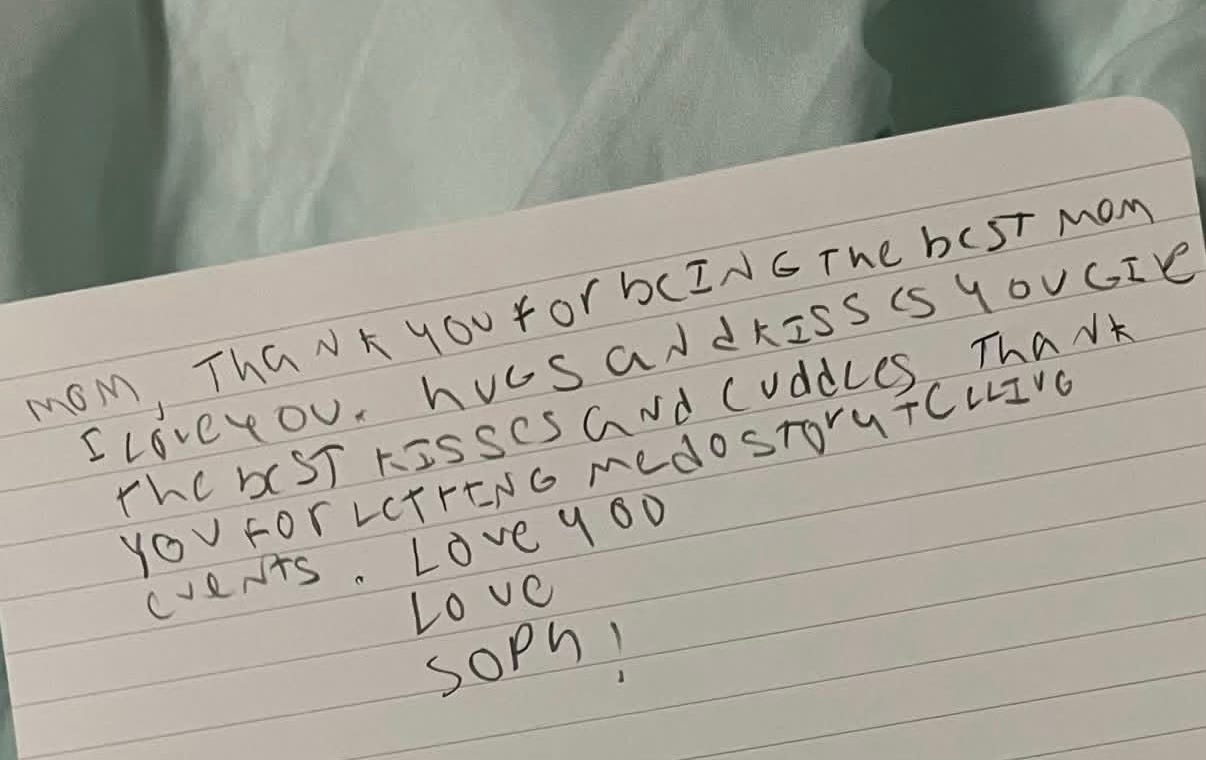 mom, ThaNK YOU FOr beING The beST mom
I Love YOU. hUGS aNd KISSeS YOU GIVe
The beST KISSeS aNd CUddLeS ThaNK
YOU FOr LeTTING me dO STOrYTeLLING
eveNTS. LOve YOU
LOve
SOPh!